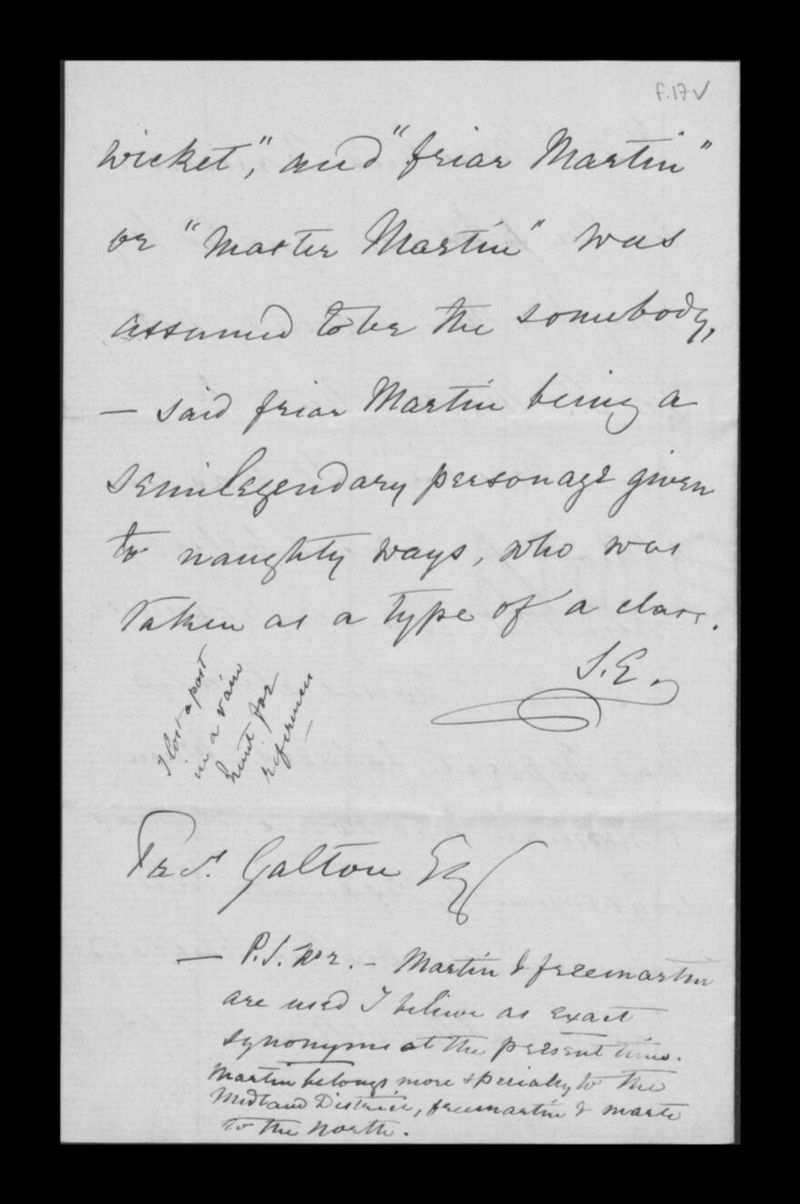 F.17v
wicket", and "friar Martin"
or "Master Martin" was
assumed to be the somebody,
— said friar Martin being a
semilegendary personage given
to naughty ways, who was
taken as a type of a class.
S.E.
I lost a post
in a vain
hunt for
references
Fras. Galton Esq
— P.S. No 2. – Martin & freemartin
are used I believe as exact
synonyms at the present time.
Martin belongs more specially to the
Midland District, freemartin & mart
to the North.